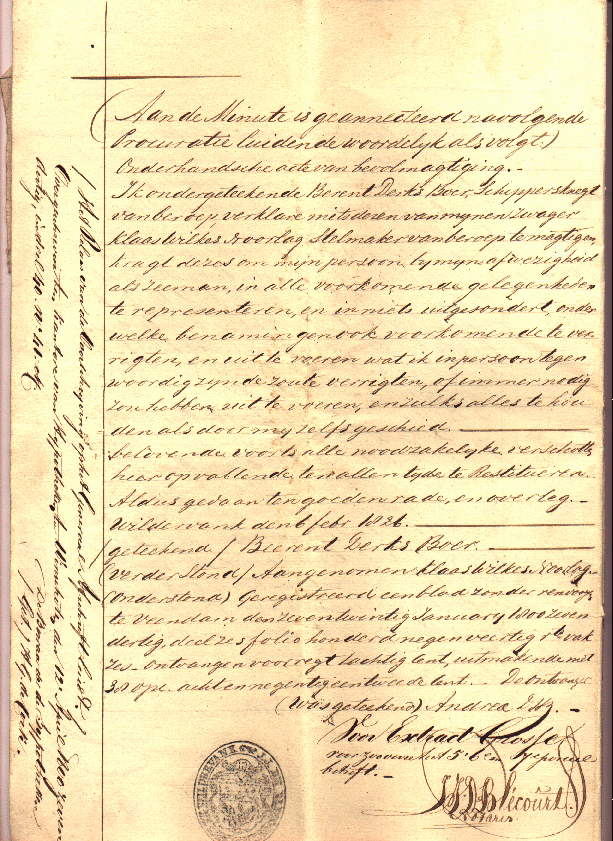 (Aan de Minute is geannecteerd navolgende
Procuratie luidende woordelyk als volgt.)
Onderhandsche acte van bevolmagtiging. -
Ik ondergeteekende Berent Derks Boer, Schippersknegt
van beroep verklare mits dezen van mynen Zwager
Klaas Wilkes Noorlag Stelmaker van beroep te magtigen,
kragt dezes om mijn persoon by myn afwezigheid
als zeeman, in alle voorkomende gelegenheden
te representeren, en in niets uitgesondert, onder
welke benaming ook voorkomende te ver-
rigten, en uit te voeren wat ik in persoon tegen
woordig zynde zoude verrigten, of immer nodig
zou hebben uit te voeren, en zulks alles te hou
den als door my zelfs geschied.
belovende voorts alle noodzakelyke verschotten
hier op vallende, ten allen tyde te Restitueren.
Aldus gedaan ten goeden rade, en overleg. -
Wildervank den 6 febr 1826.
(geteekend) Beerent Derks Boer.
(verder stond) Aangenomen Klaas Wilkes Noorlag.
(onderstond) Geregistreerd een blad zonder renvooy
te Veendam den zeventwintig January 1800 zeven
dertig, deel zes folio honderd negen veertig r vak
zes. Ontvangen voor regt tachtig cent, uitmakende met
38 opc. acht en negentig een tweede cent. - De ontvanger
(Was geteekend) Andrea
Voor Extract Grosse
5 6 en 7
behift. -
Blécourt.
Notaris.
April 1800 zeven
dertig, in deel 40 No 40